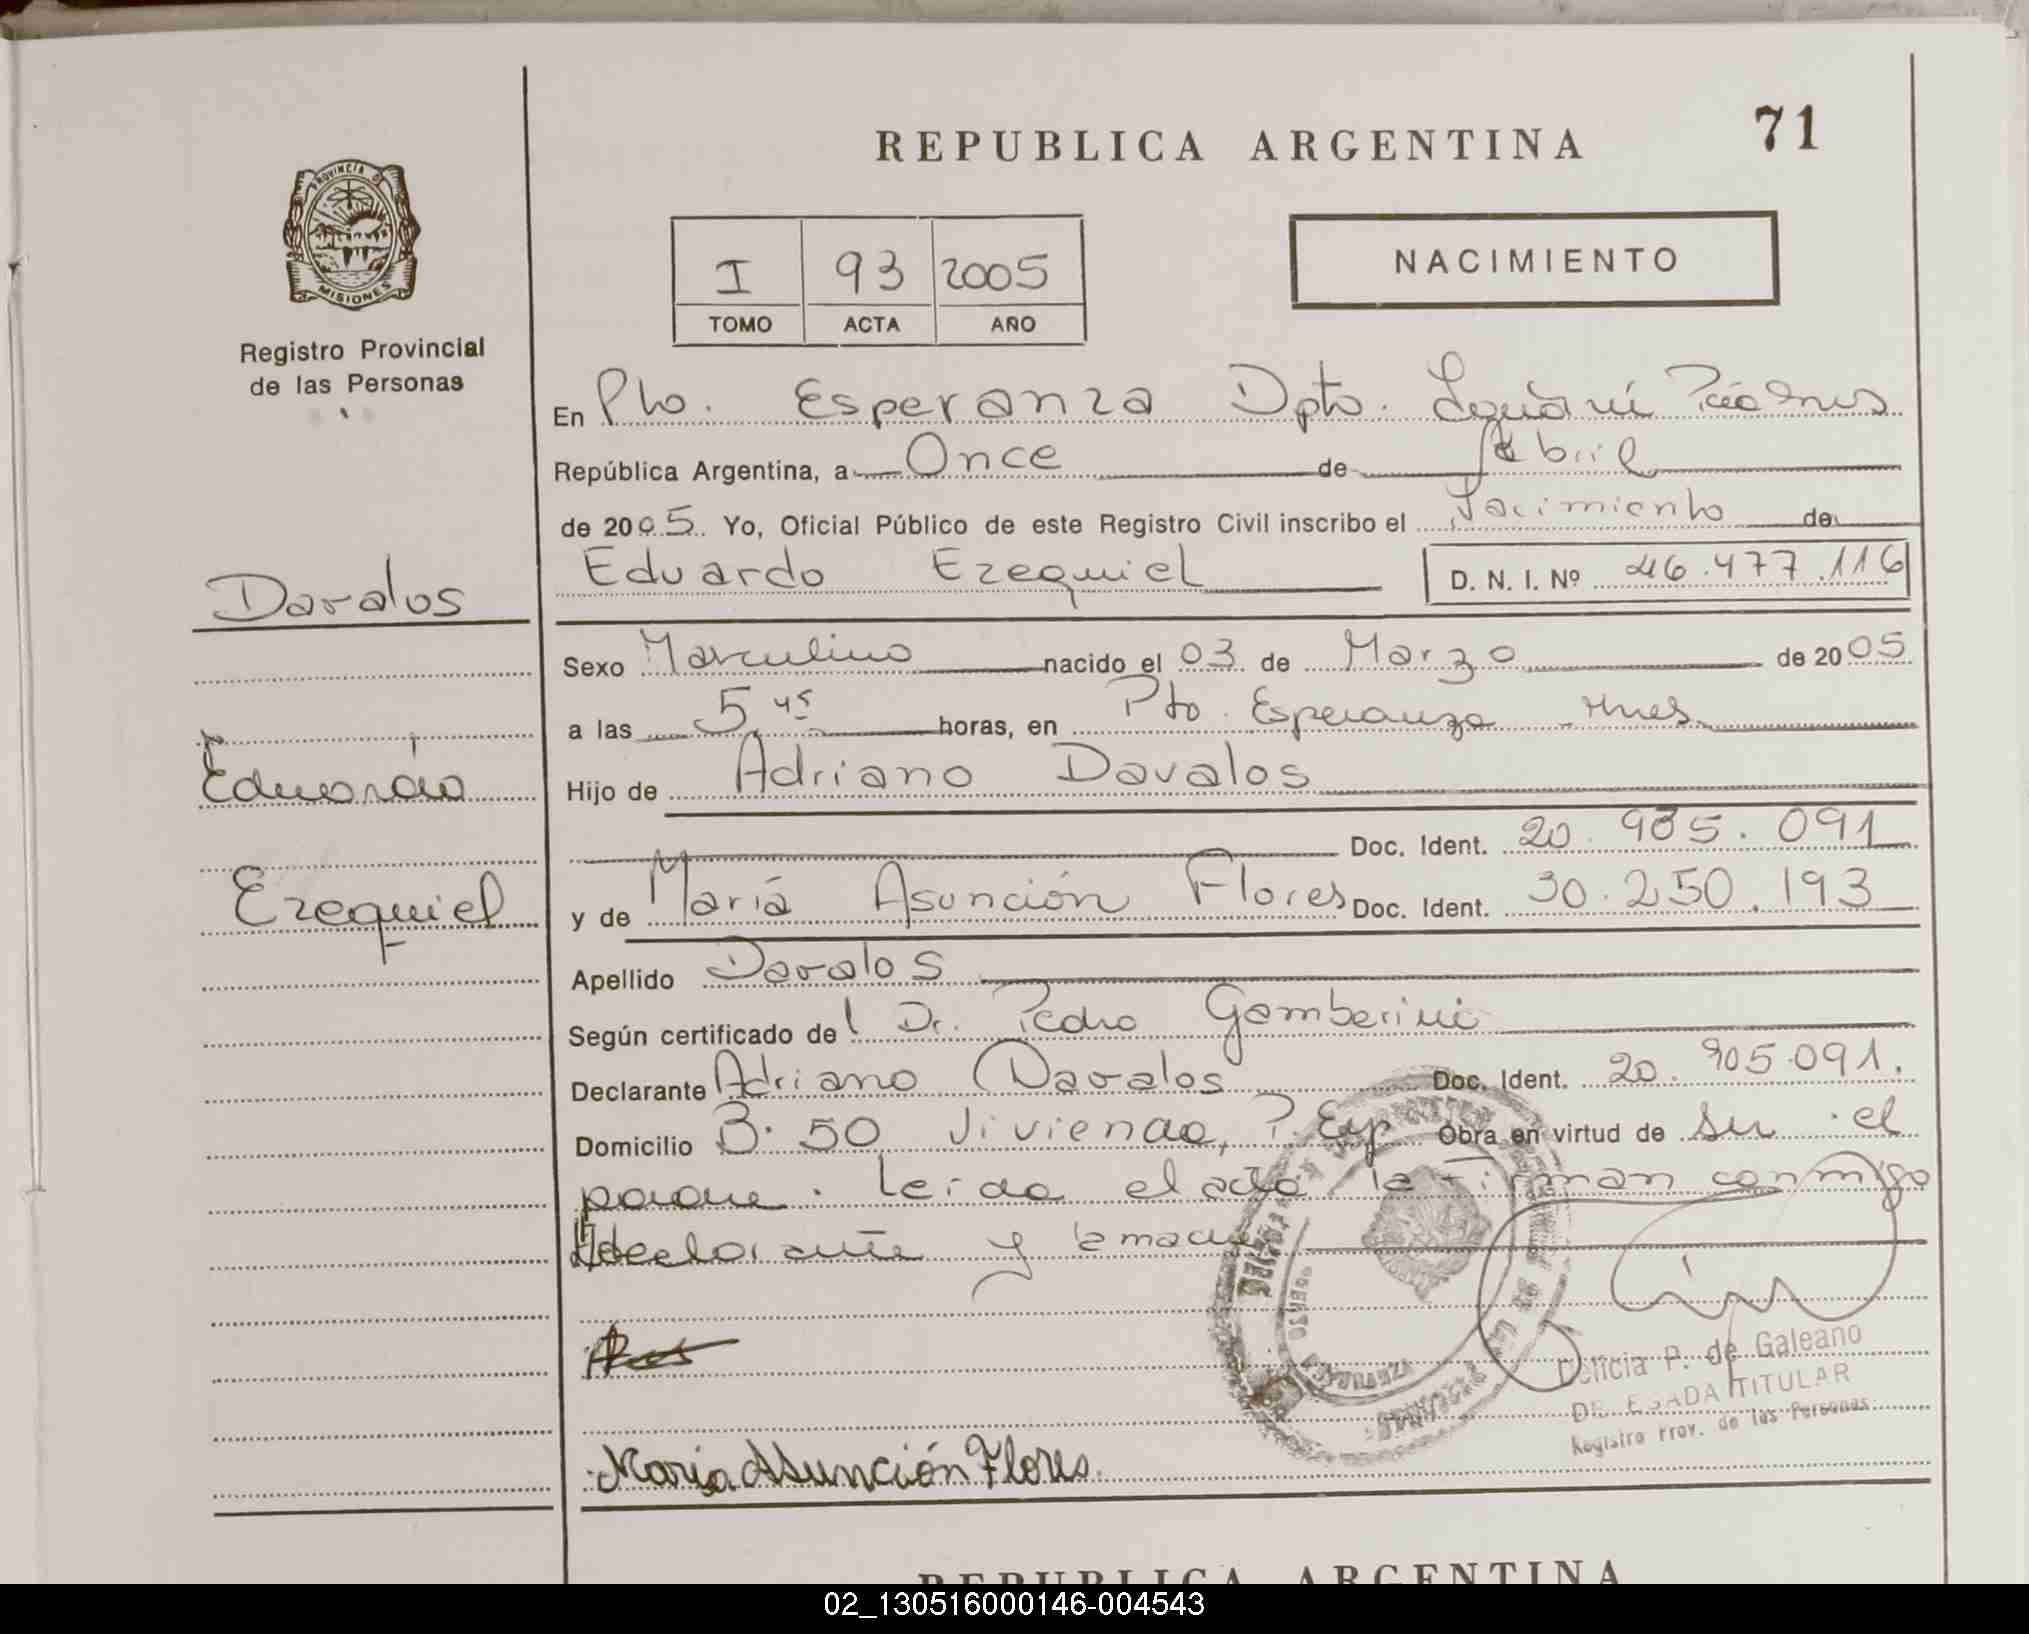 REPUBLICA ARGENTINA
71
PROVINCIA DE
MISIONES
Registro Provincial
de las Personas
I 93 2005
TOMO ACTA AÑO
NACIMIENTO
En Pto. Esperanza Dpto. Iguazú
República Argentina, a Once de Abril
de 2005. Yo, Oficial Público de este Registro Civil inscribo el Nacimiento de
Davalos
Eduardo Ezequiel D. N. I. Nº 46.477.116
Sexo Masculino nacido el 03 de Marzo de 2005
a las 5 45 horas, en Pto. Esperanza Mnes
Eduardo
Hijo de Adriano Davalos
Doc. Ident. 20.985.091
Ezequiel
y de María Asunción Flores Doc. Ident. 30.250.193
Apellido Davalos
Según certificado del Dr. Pedro Gamberini
Declarante Adriano Davalos Doc. Ident. 20.905.091.
Domicilio B. 50 Vivienda, P. Esp Obra en virtud de ser el
padre. Leida el acta la Firman conmigo
declarante y la madre
Delicia P. de Galeano
TITULAR
Registro Prov. de las Personas
Maria Asunción Flores.
REPUBLICA ARGENTINA
02_130516000146-004543